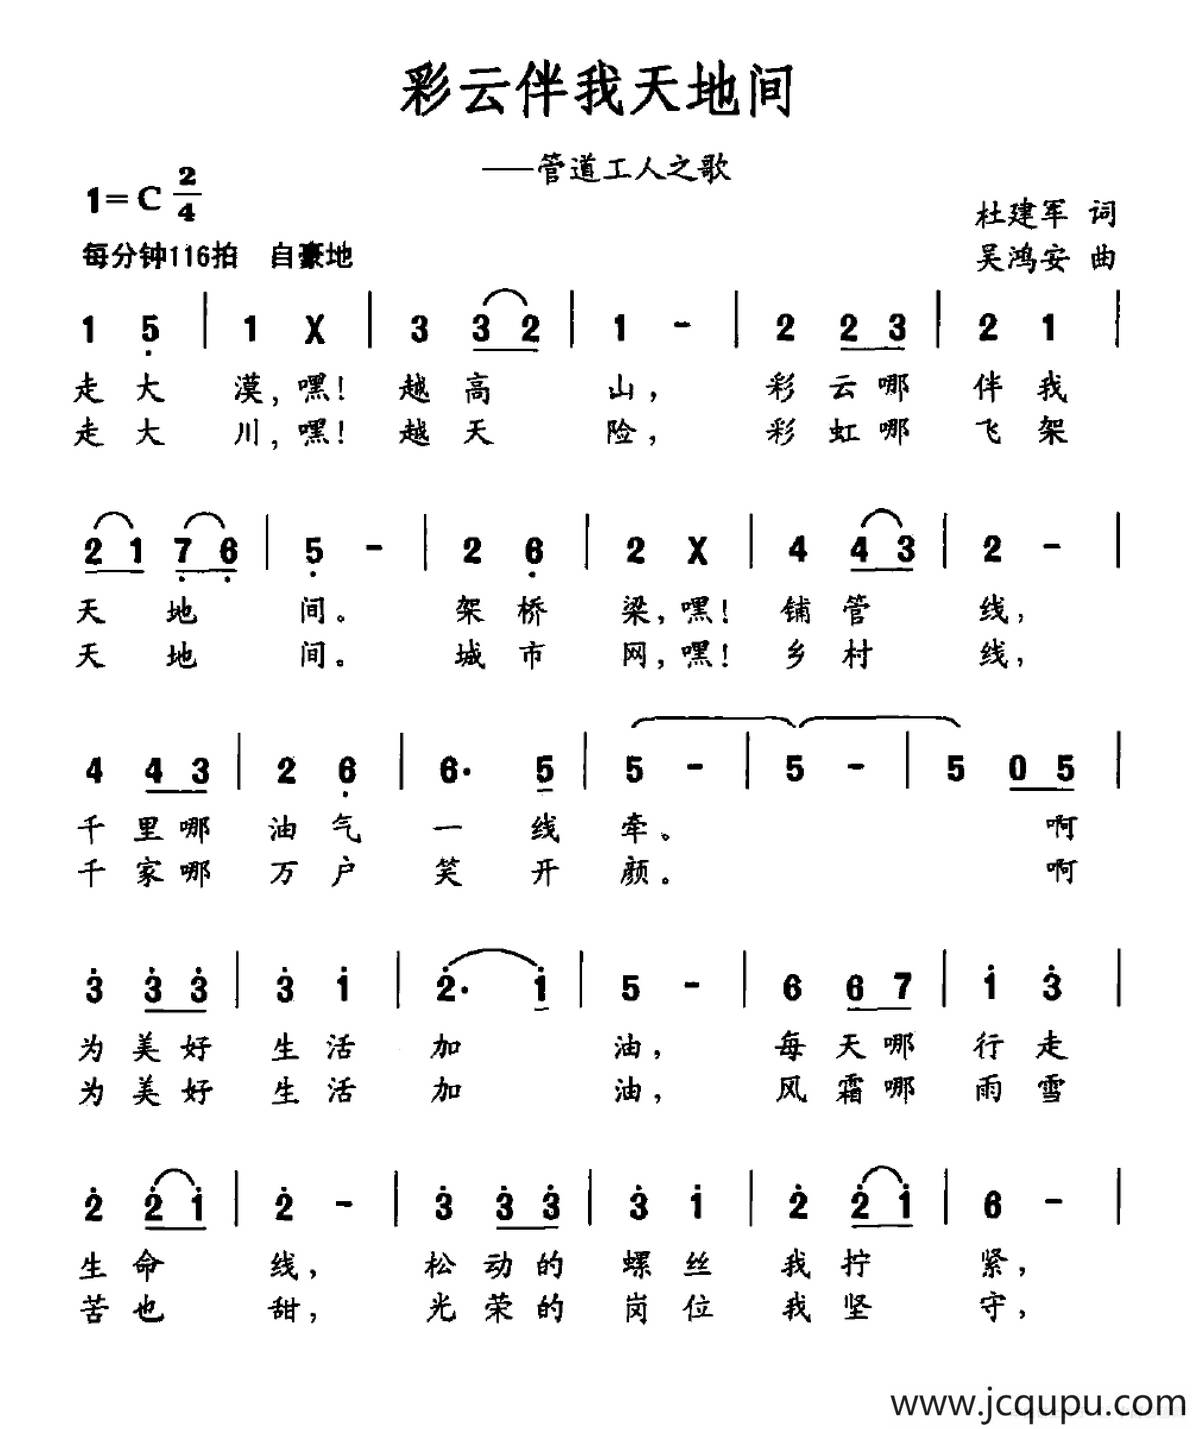 彩云伴我天地间
——管道工人之歌
1=C 2/4
杜建军 词
每分钟116拍 自豪地
吴鸿安 曲
1 5 | 1 X | 3 3 2 | 1 - | 2 2 3 | 2 1 |
走大漠,嘿!越高山,彩云哪伴我
走大川,嘿!越天险,彩虹哪飞架
2 1 7 6 | 5 - | 2 6 | 2 X | 4 4 3 | 2 - |
天地间。架桥梁,嘿!铺管线,
天地间。城市网,嘿!乡村线,
4 4 3 | 2 6 | 6· 5 | 5 - | 5 - | 5 0 5 |
千里哪油气一线牵。啊
千家哪万户笑开颜。啊
3 3 3 | 3 1 | 2· 1 | 5 - | 6 6 7 | 1 3 |
为美好生活加油,每天哪行走
为美好生活加油,风霜哪雨雪
2 2 1 | 2 - | 3 3 3 | 3 1 | 2 2 1 | 6 - |
生命线,松动的螺丝我拧紧,
苦也甜,光荣的岗位我坚守,
www.jcqupu.com